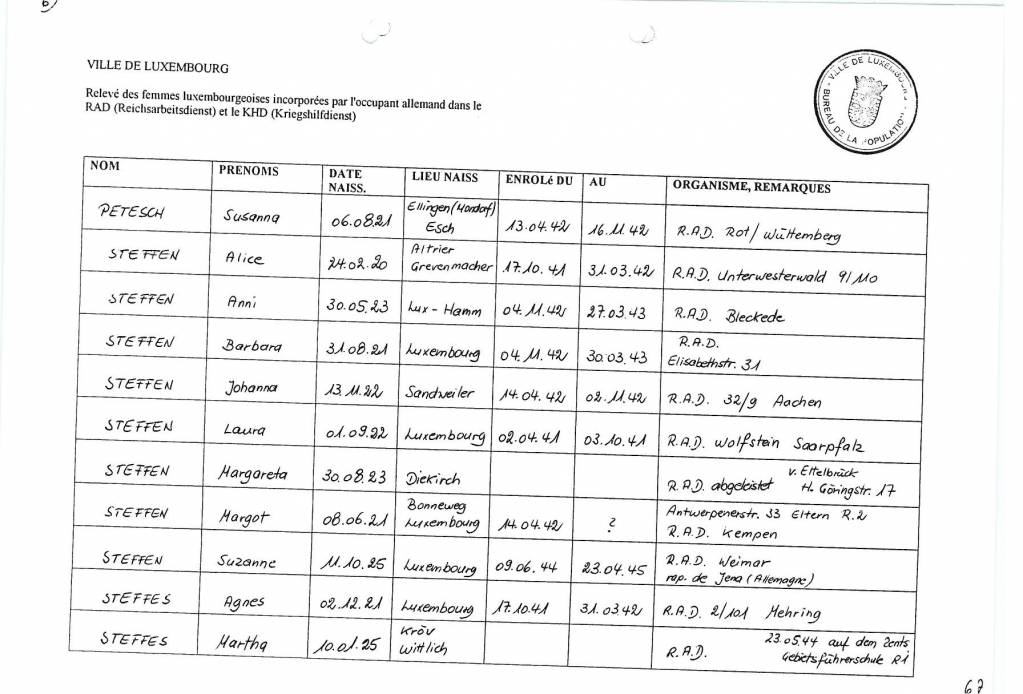 6)
VILLE DE LUXEMBOURG
Relevé des femmes luxembourgeoises incorporées par l'occupant allemand dans le
RAD (Reichsarbeitsdienst) et le KHD (Kriegshilfdienst)
VILLE DE LUXEMBOURG
BUREAU DE LA POPULATION
NOM PRENOMS DATE NAISS. LIEU NAISS ENROLé DU AU ORGANISME, REMARQUES
PETESCH Susanna 06.08.21 Ellingen (Mondorf) Esch 13.04.42 16.11.42 R.A.D. Rot/Württemberg
STEFFEN Alice 24.02.20 Altrier Grevenmacher 17.10.41 31.03.42 R.A.D. Unterwesterwald 9/110
STEFFEN Anni 30.05.23 Lux-Hamm 04.11.42 27.03.43 R.A.D. Bleckede
STEFFEN Barbara 31.08.21 Luxembourg 04.11.42 30.03.43 R.A.D. Elisabethstr. 31
STEFFEN Johanna 13.11.22 Sandweiler 14.04.42 02.11.42 R.A.D. 32/9 Aachen
STEFFEN Laura 01.09.22 Luxembourg 02.04.41 03.10.41 R.A.D. Wolfstein Saarpfalz
STEFFEN Margareta 30.08.23 Diekirch R.A.D. abgeleistet v. Ettelbrück H. Göringstr. 17
STEFFEN Margot 08.06.21 Bonneweg Luxembourg 14.04.42 ? Antwerpenerstr. 33 Eltern R.2 R.A.D. Kempen
STEFFEN Suzanne 11.10.25 Luxembourg 09.06.44 23.04.45 R.A.D. Weimar rap. de Jena (Allemagne)
STEFFES Agnes 02.12.21 Luxembourg 17.10.41 31.03.42 R.A.D. 2/101 Mehring
STEFFES Martha 10.01.25 Kröv Wittlich R.A.D. 23.05.44 auf dem Gebietsführerschule
67